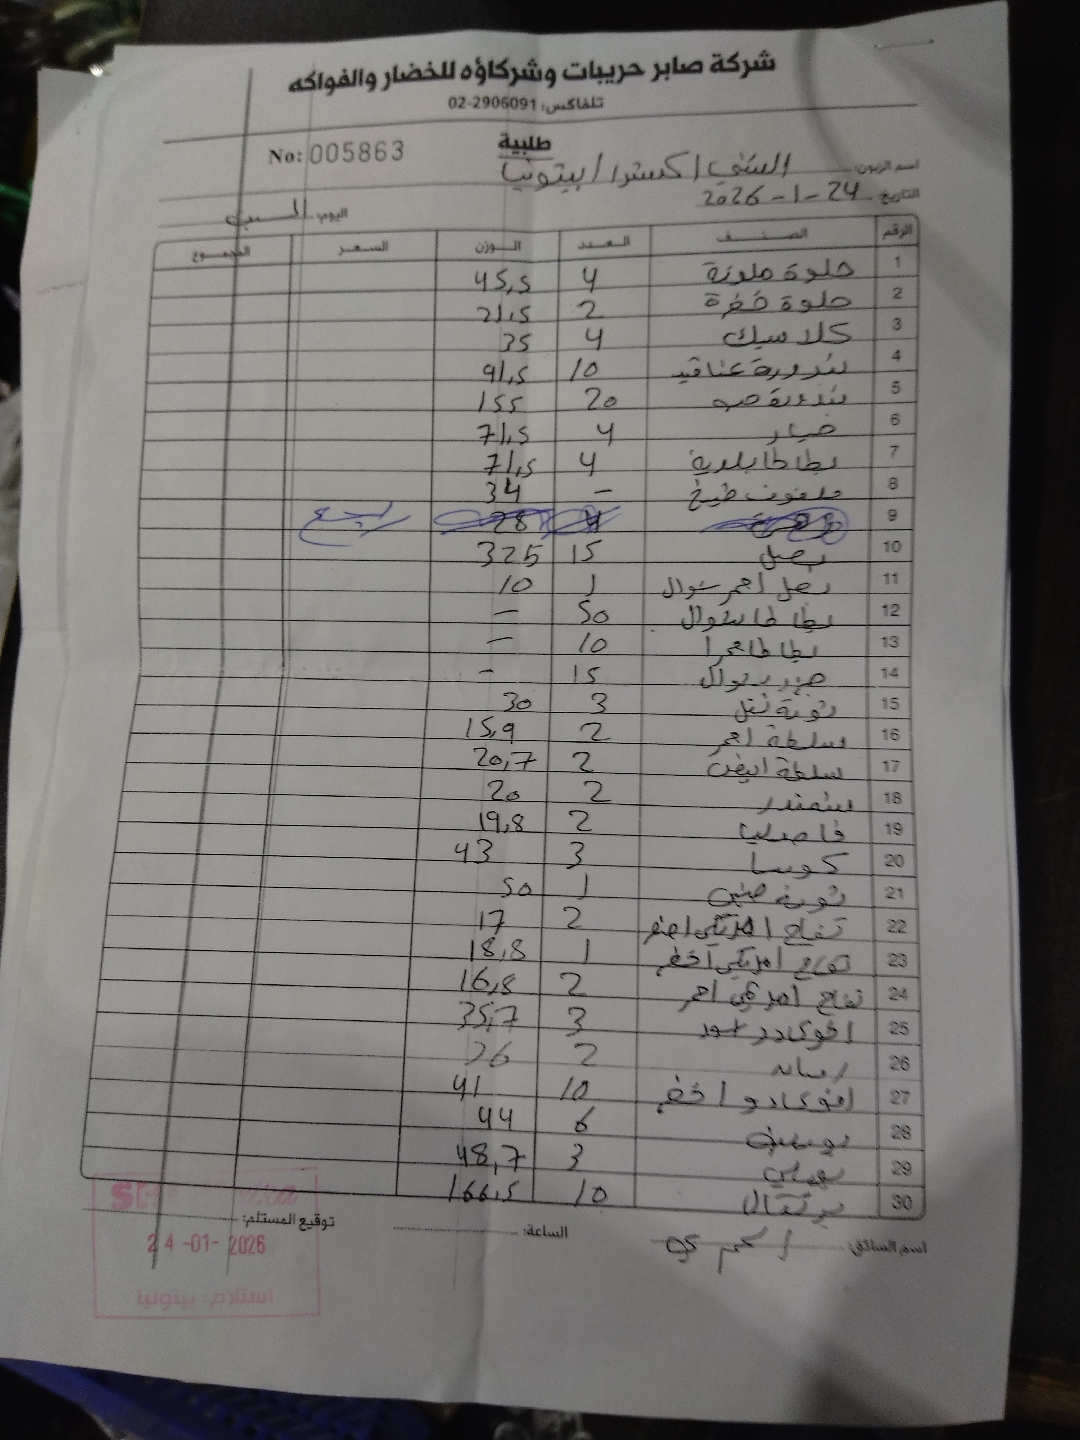 شركة صابر حريبات وشركاؤه للخضار والفواكه
تلفاكس: 02-2906091
طلبية
No: 005863
اسم الزبون: الشني اكسترا / بيتونيا
التاريخ: 24-1-2026
اليوم: السبت
الرقم الصنف العدد الوزن السعر المجموع
1 حلوة ملونة 4 45,5
2 حلوة خضرة 2 21,5
3 كلاسيك 4 35
4 بندورة عناقيد 10 91,5
5 بندورة 20 155
6 خيار 4 71,5
7 بطاطا بلدية 4 71,5
8 ملفوف طبيخ - 34
9 4 28
10 بصل 15 325
11 بصل احمر شوال 1 10
12 بطاطا شوال 50 -
13 بطاطا حمرا 10 -
14 جزر 15 -
15 ثومة نتل 3 30
16 سلطة احمر 2 15,9
17 سلطة ابيض 2 20,7
18 شمندر 2 20
19 فاصليا 2 19,8
20 كوسا 3 43
21 ثومة 1 50
22 تفاح امريكي اصفر 2 17
23 تفاح امريكي اخضر 1 18,8
24 تفاح امريكي احمر 2 16,8
25 افوكادو اسود 3 35,7
26 2 26
27 افوكادو اخضر 10 41
28 6 44
29 3 48,7
30 برتقال 10 166,5
اسم السائق:
الساعة:
توقيع المستلم:
24-01-2026
استلام: بيتونيا